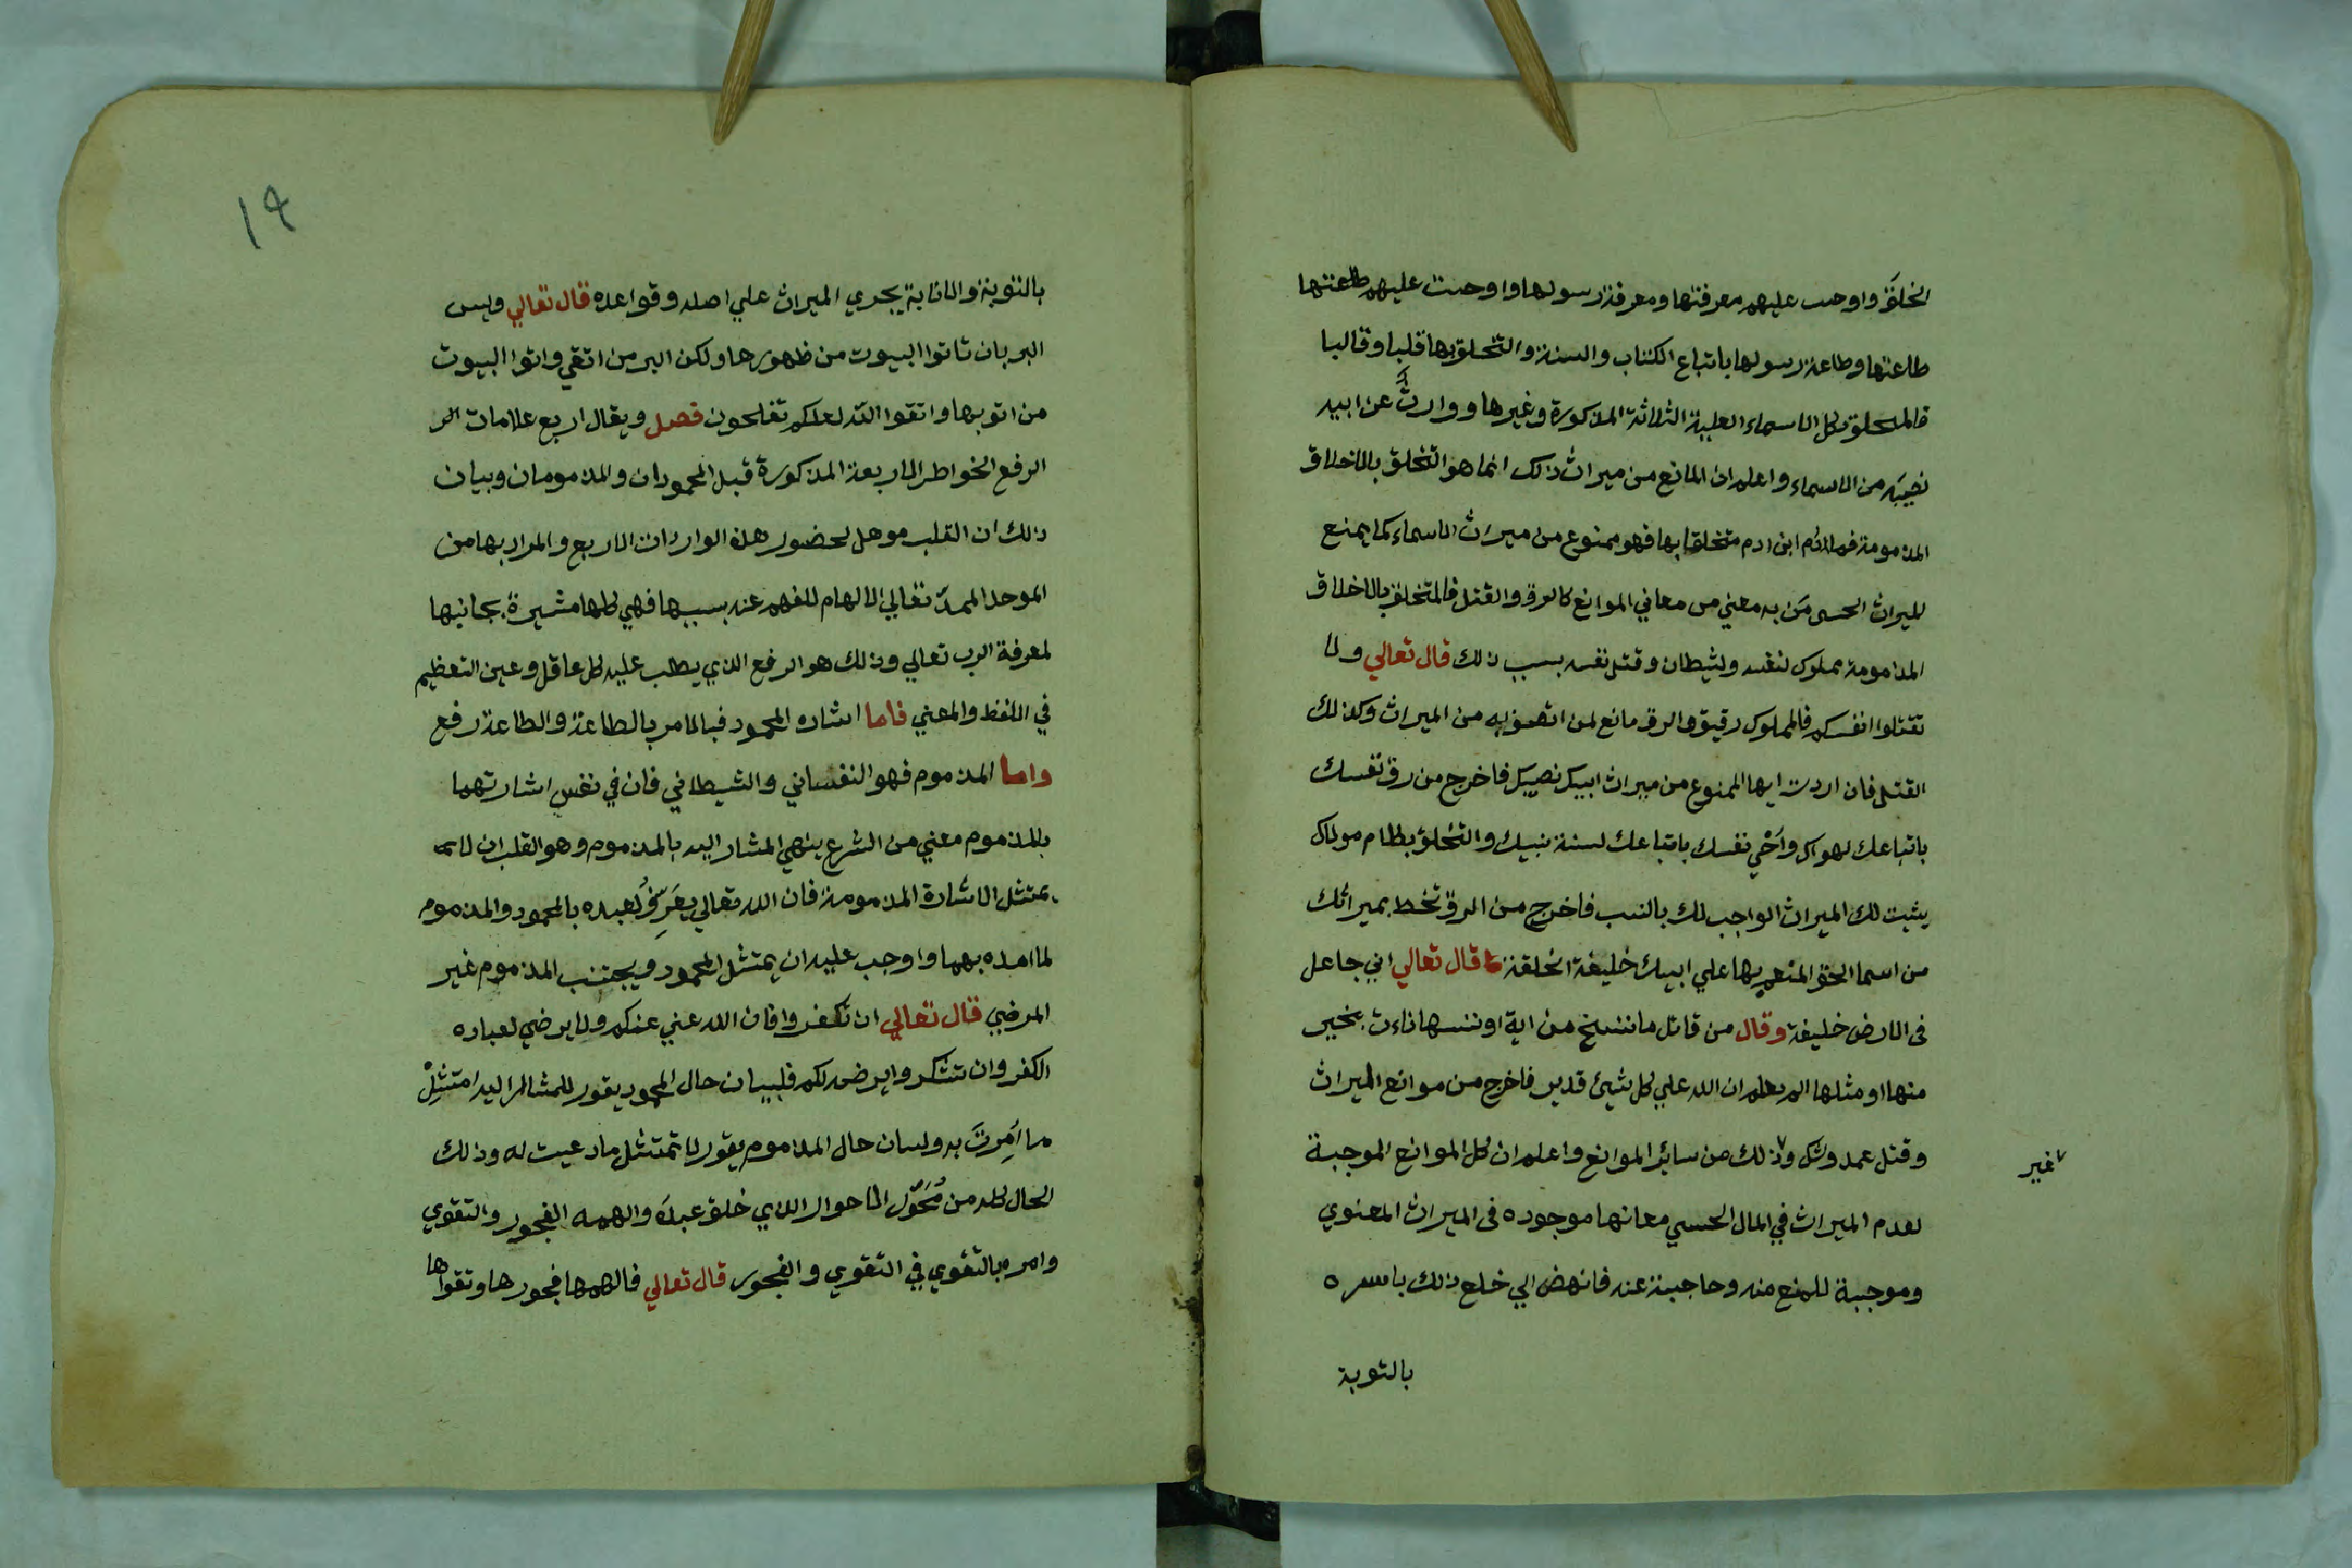 الخلق واوجب عليهم معرفتها ومعرفة رسولها واوجبت عليهم طاعتها
طاعتها وطاعة رسولها باتباع الكتاب والسنة والتخلق بها قلبا وقالبا
فالمتخلق بكل الاسماء العلية الثلاثة المذكورة وغيرها ووارثٌ عن ابيه
نصيبَه من الاسماء واعلم ان المانع من ميراث ذلك انما هو التخلق بالاخلاق
المذمومة فمادام ابن ادم متخلقا بها فهو ممنوع من ميراث الاسماء كما يمنع
للميراث الحسي مَن به معني من معاني الموانع كالرق والقتل فالمتخلق بالاخلاق
المذمومة مملوك لنفسه ولشيطان وقتل نفسه بسبب ذلك قال تعالي ولا
تقتلوا انفسكم فالمملوك رقيق والرق مانع لمن اتصف به من الميراث وكذلك
القتل فان اردت ايها الممنوع من ميراث ابيك نصيبك فاخرج من رق نفسك
باتباعك لهواك واَحْي نفسك باتباعك لسنة نبيك والتخلق بكلام مولاك
يثبت لك الميراث الواجب لك بالنسب فاخرج من الرق تحظ بميراثك
من اسما الحق المنعم بها علي ابيك خليفة الخلقة كما قال تعالي اني جاعل
فى الارض خليفة وقال من قائل ما ننسخ من اية او ننسها نات بخير
منها او مثلها الم تعلم ان الله علي كل شيئ قدير فاخرج من موانع الميراث
وقتل عمد وشك وذلك من سائر الموانع واعلم ان كل الموانع الموجبة
غير
لعدم الميراث في المال الحسي معانها موجوده فى الميراث المعنوي
وموجبة للمنع منه وحاجبة عنه فانهض الي خلع ذلك باسره
بالتوبة
١٩
بالتوبة والانابة يجري الميراث علي اصله وقواعده قال تعالي وليس
البر بان تاتوا البيوت من ظهورها ولكن البر من اتقي واتوا البيوت
من ابوابها واتقوا الله لعلكم تفلحون فصل ويقال اربع علامات
الرفع الخواطر الاربعة المذكورة قبل المحمودان والمذمومان وبيان
ذلك ان القلب موهل لحضور هذه الواردات الاربع والمراد بها من
الموحد الممدّ تعالي الالهام للفهم عنه بسببها فهي كلها مشيرة بجانبها
لمعرفة الرب تعالي وذلك هو الرفع الذي يطلب عليه كل عاقل وعين التعظيم
في اللفظ والمعني فاما اشاره المحمود فبالامر بالطاعة والطاعة رفع
واما المذموم فهو النفساني والشيطاني فان في نفس اشارتهما
بالمذموم معني من الشرع ينهي المشار اليه بالمذموم وهو القلب ان لا
يمتثل الاشارة المذمومة فان الله تعالي يعَرِّفُ لعبده بالمحمود والمذموم
لما امده بهما واوجب عليه ان يمتثل المحمود ويجتنب المذموم غير
المرضي قال تعالي ان تكفروا فان الله غني عنكم ولا يرضي لعباده
الكفر وان تشكروا يرضه لكم فلبيان حال المحمود يقول للمشار اليه امتثِلْ
ما اُمِرتَ به ولسان حال المذموم يقول لا تمتثل ما دعيت له وذلك
الحال كله من مُحَوّل الاحوال الذي خلق عبدَه والهمه الفجور والتقوي
وامره بالتقوي في التقوي والفجور قال تعالي فالهمها فجورها وتقواها